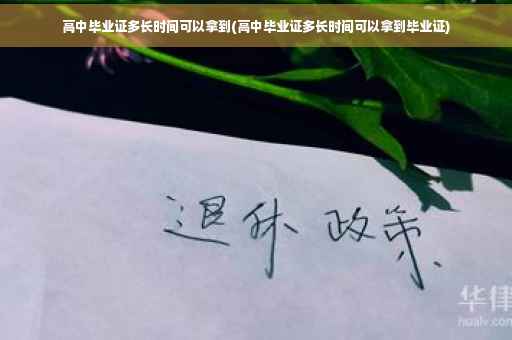 高中毕业证多长时间可以拿到(高中毕业证多长时间可以拿到毕业证)
退休 政策
华律
hualv.com